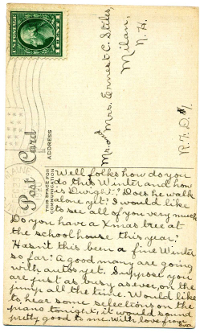 Mr. & Mrs. Ernest C. Stiles,
Milan,
N. H.
R. F. D. 1.
Post Card
THIS SPACE FOR
COMMUNICATION
ADDRESS
Well folks how do you
do this Winter and how
is Dwight? Does he walk
alone yet? I would like
to see all of you very much
Do you have a Xmas tree at
the school house this year.
Hasn't this been a fine Winter
so far. A good many are going
with autos yet. Suppose you
are just as busy as ever, on the
jump all the time. Would like
to hear some selections on the
piano tonight, it would sound
pretty good to me with love from